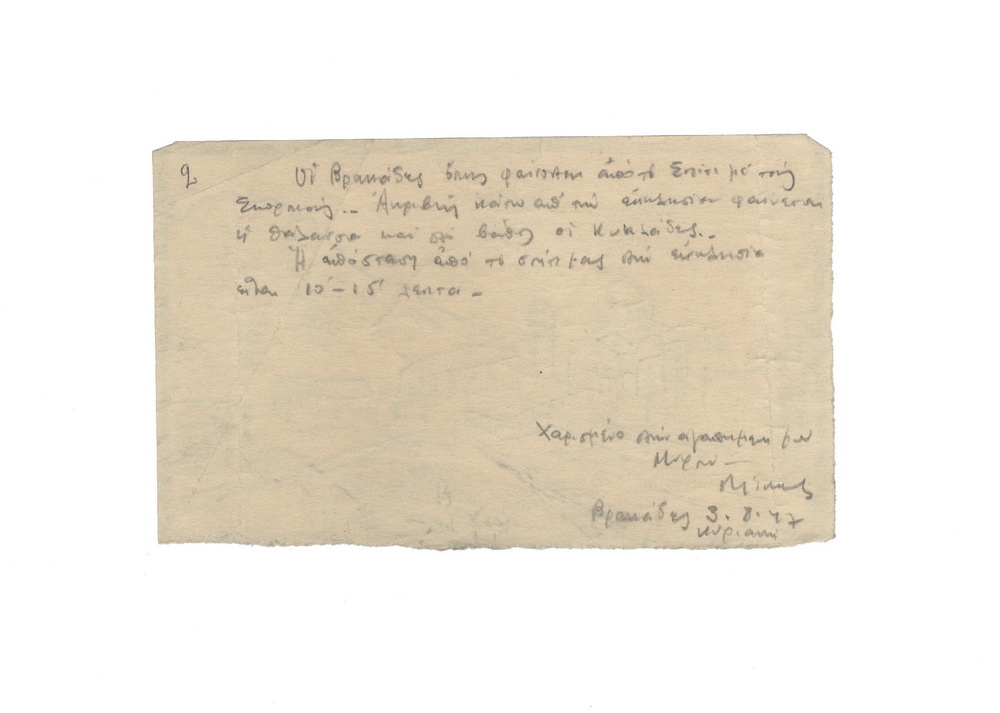 2 Οἱ Βρακάδες ὅπως φαίνονται ἀπὸ τὸ Σπίτι μὲ τοὺς
Ἀκριβῶς κάτω ἀπὸ τὴν ἐκκλησία φαίνεται
ἡ θάλασσα καὶ στὸ βάθος οἱ Κυκλάδες.-
Ἡ ἀπόσταση ἀπὸ τὸ σπίτι μας στὴν ἐκκλησία
εἶναι 10-15 λεπτὰ -
Χαρισμένο στὴν ἀγαπημένη μου
Βρακάδες 3.8.47
Κυριακή